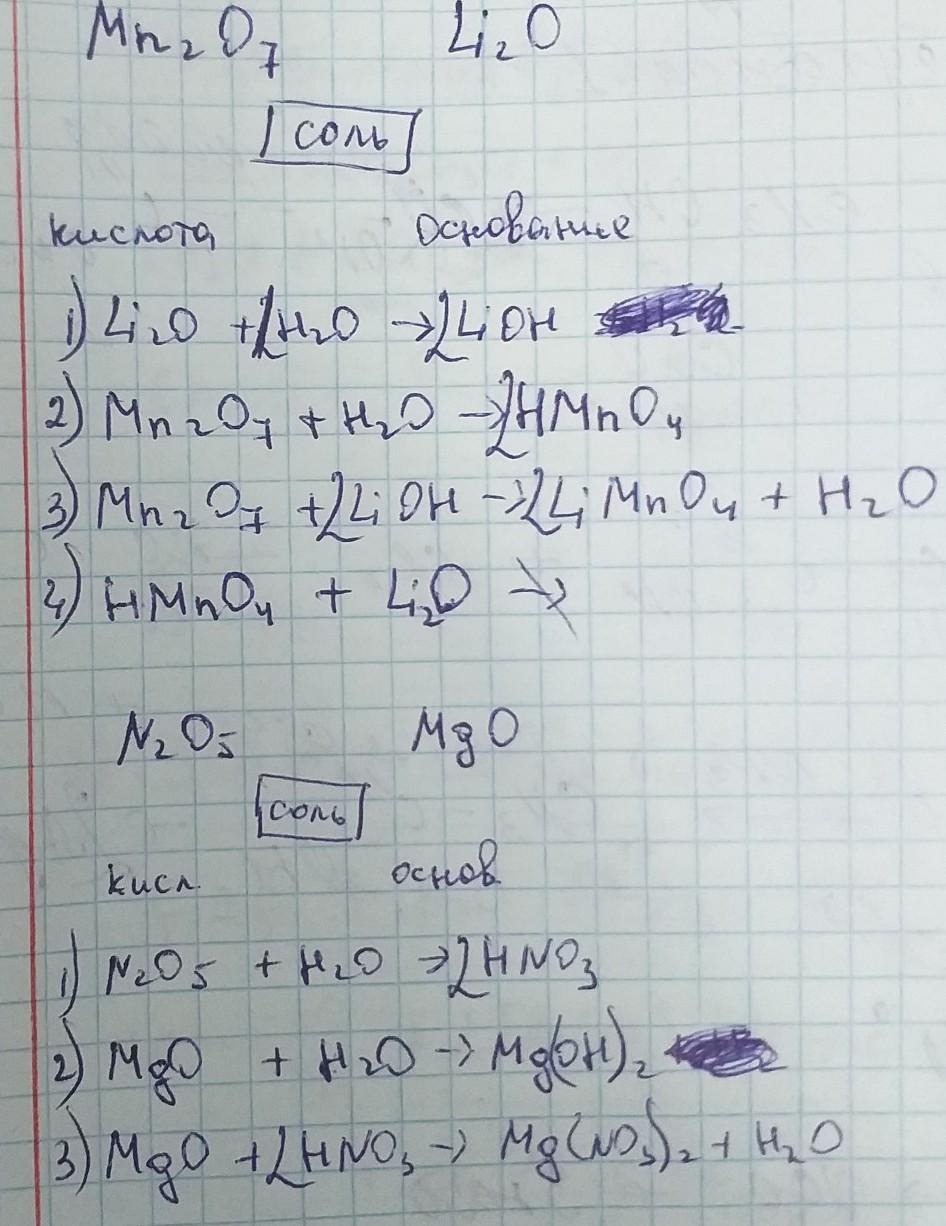 Mn₂O₇ Li₂O
соль
кислота основание
1) Li₂O + 2H₂O → 2LiOH
2) Mn₂O₇ + H₂O → 2HMnO₄
3) Mn₂O₇ + 2LiOH → 2LiMnO₄ + H₂O
4) HMnO₄ + Li₂O ↛
N₂O₅ MgO
соль
кисл. основ
1) N₂O₅ + H₂O → 2HNO₃
2) MgO + H₂O → Mg(OH)₂
3) MgO + 2HNO₃ → Mg(NO₃)₂ + H₂O